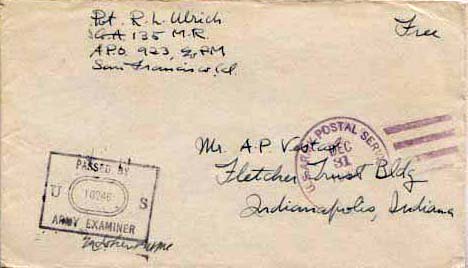 Pvt. R. L. Ulrich
135 M.R.
A.P.O. 923, % PM
San Francisco, Cal.
Free
U.S. ARMY POSTAL SERVICE
DEC
31
Mr. A.P.
Fletcher Trust Bldg
Indianapolis, Indiana
PASSED BY
U S
ARMY EXAMINER